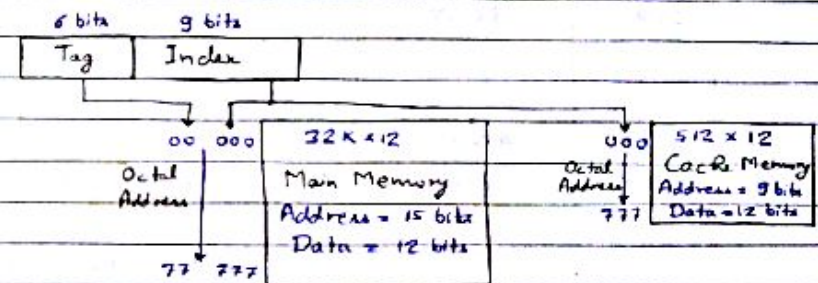 6 bits 9 bits
Tag Index
00 000
Octal
Address
77 777
32K x 12
Main Memory
Address = 15 bits
Data = 12 bits
000
Octal
Address
777
512 x 12
Cache Memory
Address = 9 bits
Data = 12 bits